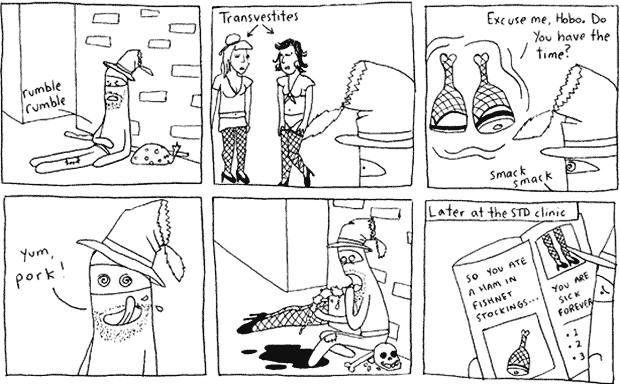 rumble
rumble
Transvestites
Excuse me, Hobo. Do
You have the
time?
smack
smack
Yum,
pork!
Later at the STD clinic
SO YOU ATE
A HAM IN
FISHNET
STOCKINGS...
YOU ARE
SICK
FOREVER
• 1
• 2
• 3